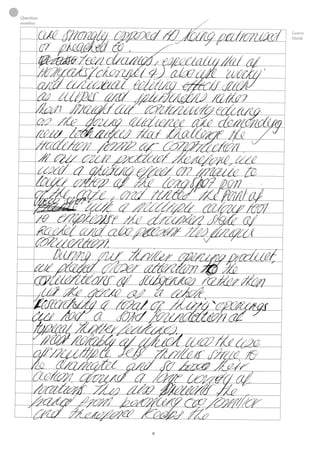 Question
number
Leave
blank
are strongly opposed to being patronised
or preached to.
teen dramas, especially that of
Hollyoaks (channel 4) also use 'wacky'
and unusual editing effects such
as wipes and splitscreens rather
than straight cut continuity editing
as the young audience are demanding
new techniques that challenge the
tradition forms of construction.
In our own product therefore, we
used a ghosting effect on imovie to
layer ontop of the long shot pan
of the cafe, and tinted the point of
view with a multiple colour tint
to emphasise the drunken state of
Rachel and also present this unique
convention.
During our thriller opening product,
we played closer attention to the
conventions of subgenres rather than
just the genre as a whole.
Researching a total of thirty openings
gave us a solid foundation of
typical thriller features.
most notably of which was the use
of multiple sets. Thrillers strive to
be dramatic and so base their
action around a large variety of
locations. This also prevents the
from becoming too familiar
and therefore keeps the